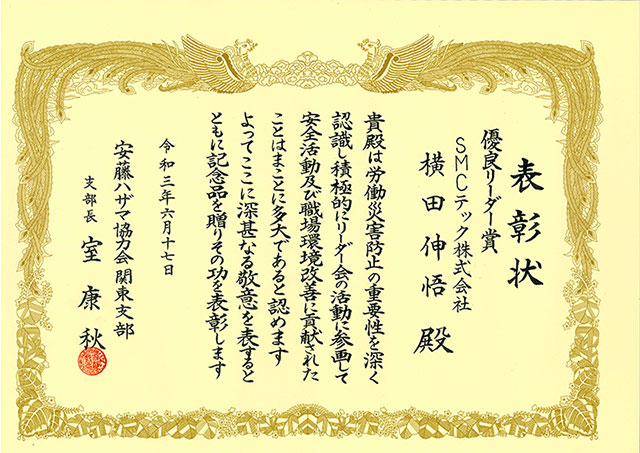 表彰状
優良リーダー賞
SMCテック株式会社
横田伸悟殿
貴殿は労働災害防止の重要性を深く
認識し積極的にリーダー会の活動に参画して
安全活動及び職場環境改善に貢献された
ことはまことに多大であると認めます
よってここに深甚なる敬意を表すると
ともに記念品を贈りその功を表彰します
令和三年六月十七日
安藤ハザマ協力会関東支部
支部長 室康秋